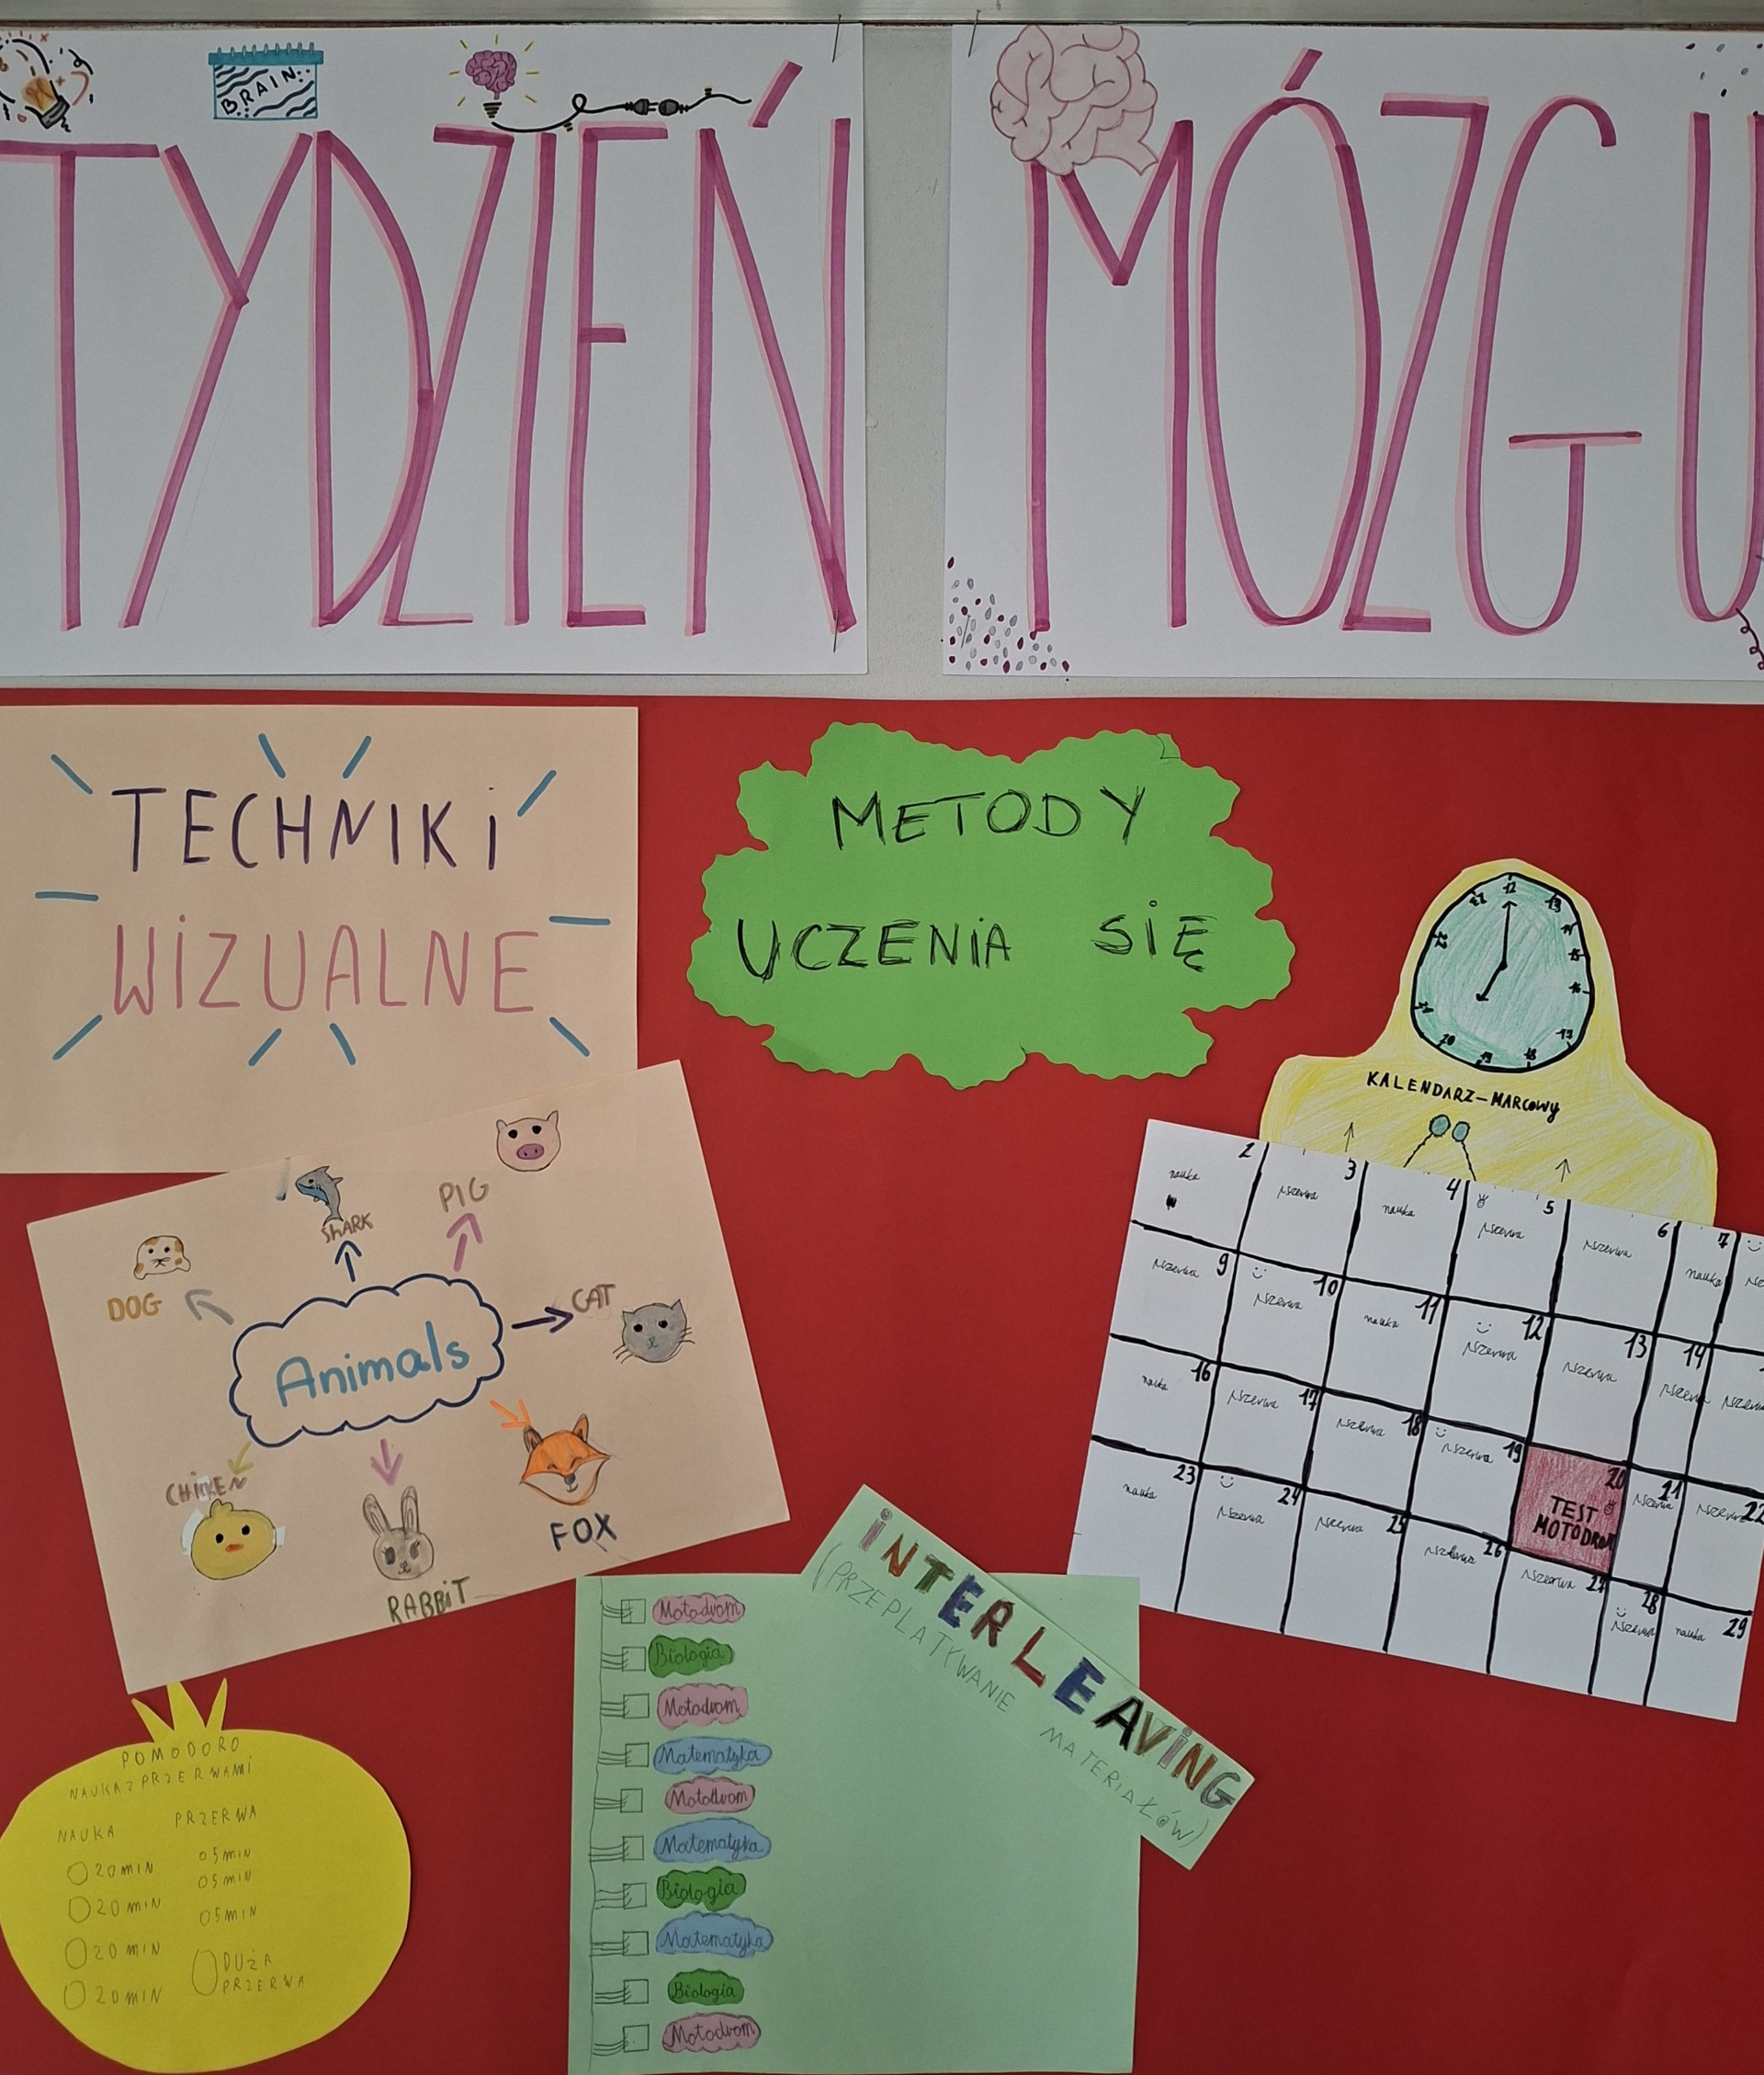 BRAIN
TYDZIEŃ MÓZGU
TECHNIKI
WIZUALNE
METODY
UCZENIA SIĘ
KALENDARZ-MARCOWY
2 nauka
3 przerwa
4 nauka
5 przerwa
6 przerwa
7 nauka
9 przerwa
10 przerwa
11 nauka
12 przerwa
13 przerwa
14 przerwa
16 nauka
17 przerwa
18 przerwa
19 przerwa
20 TEST
MOTODROM
21 przerwa
22 przerwa
23 nauka
24 przerwa
25 przerwa
26 przerwa
27 przerwa
28 przerwa
29 nauka
PIG
SHARK
DOG
CAT
Animals
CHIKEN
RABBIT
FOX
INTERLEAVING
(PRZEPLATYWANIE MATERIAŁÓW)
Motodrom
Biologia
Motodrom
Matematyka
Motodrom
Matematyka
Biologia
Matematyka
Biologia
Motodrom
POMODORO
NAUKA Z PRZERWAMI
NAUKA PRZERWA
20 MIN 5 MIN
20 MIN 5 MIN
20 MIN 5 MIN
20 MIN DUŻA
PRZERWA